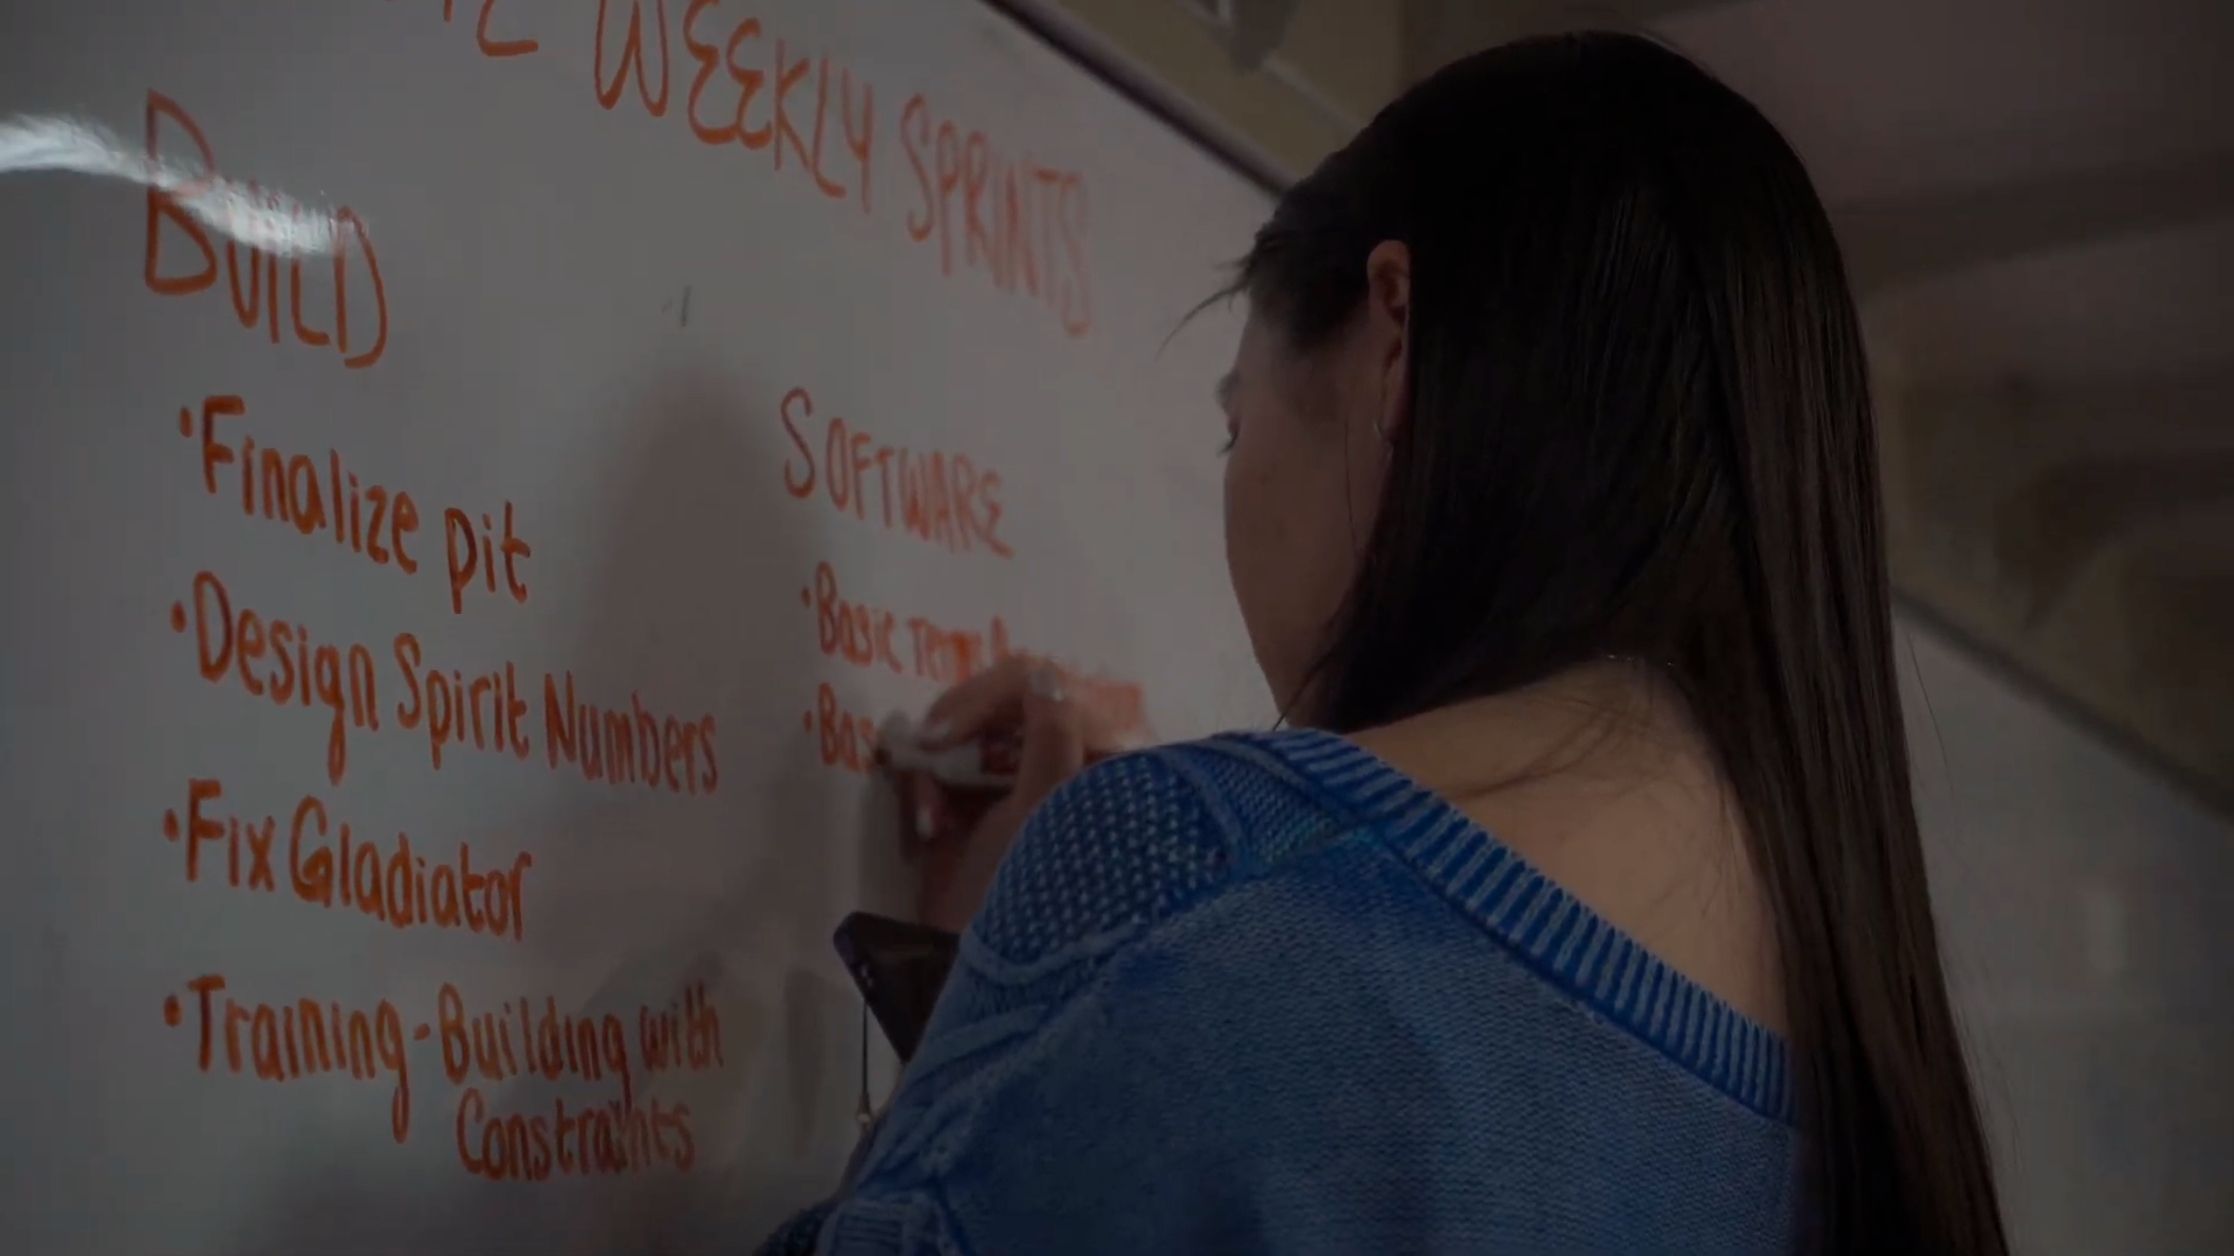 WEEKLY SPRINTS
BUILD
•Finalize pit
•Design Spirit Numbers
•Fix Gladiator
•Training-Building with
Constraints
SOFTWARE
•Basic
•Bas